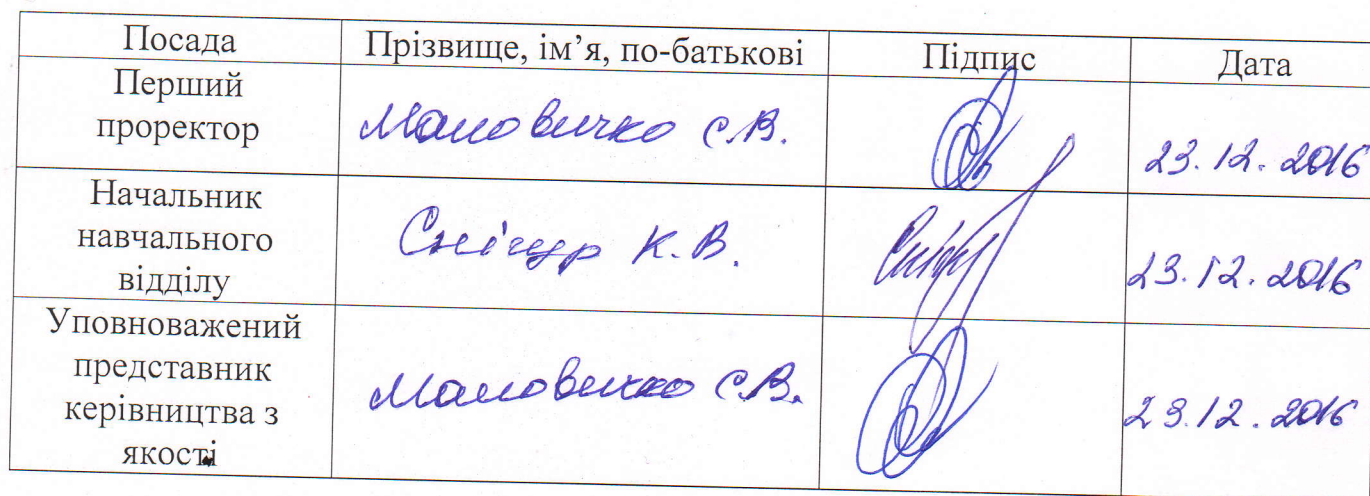 Посада Прізвище, ім’я, по-батькові Підпис Дата
Перший
проректор
Маловичко С.В. 23.12.2016
Начальник
навчального
відділу
Снігур К.В. 23.12.2016
Уповноважений
представник
керівництва з
якості
Маловичко С.В. 23.12.2016